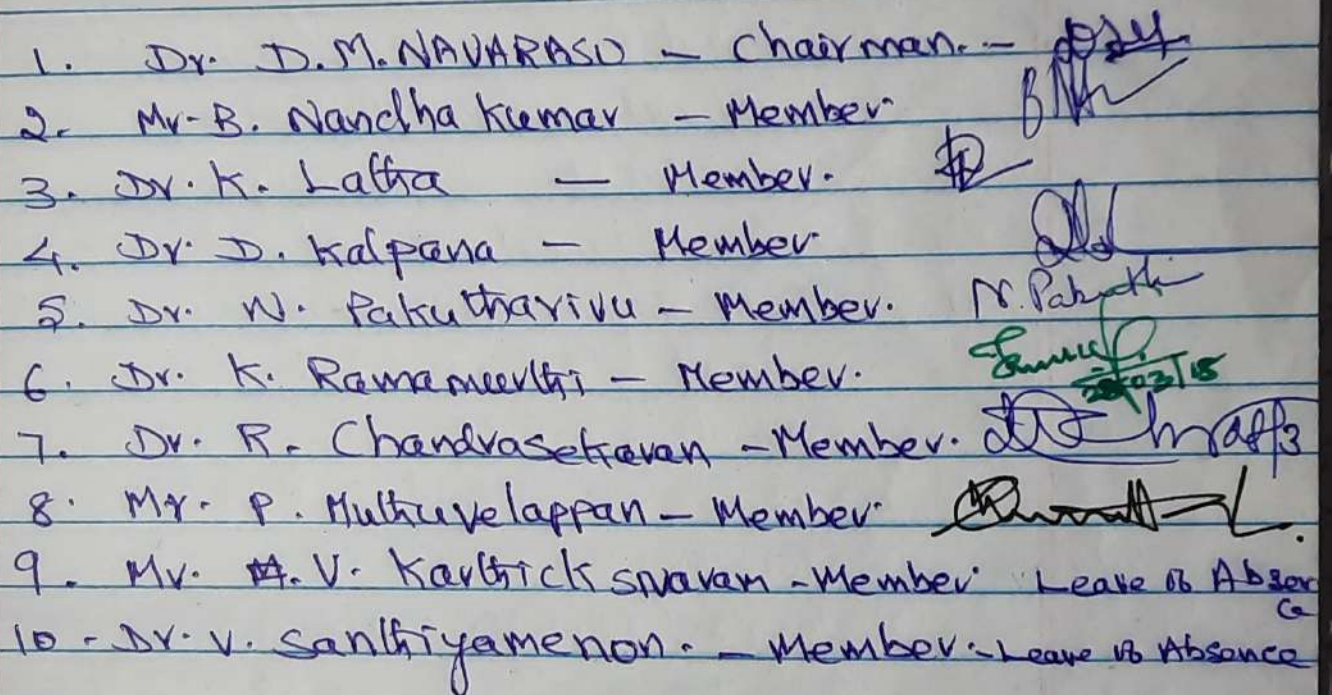 1. Dr. D.M. NAVARASU - Chairman. -
2. Mr. B. Nandha Kumar - Member.
3. Dr. K. Latha - Member.
4. Dr. D. Kalpana - Member.
5. Dr. N. Pakutharivu - Member. N. Paku
6. Dr. K. Ramamoorthi - Member. /03/15
7. Dr. R. Chandrasekaran - Member.
8. Mr. P. Muthuvelappan - Member.
9. Mr. V. Karthick sivaram - Member Leave of Absen
ce
10 - Dr. V. Santhiyamenon. - Member. - Leave of Absence